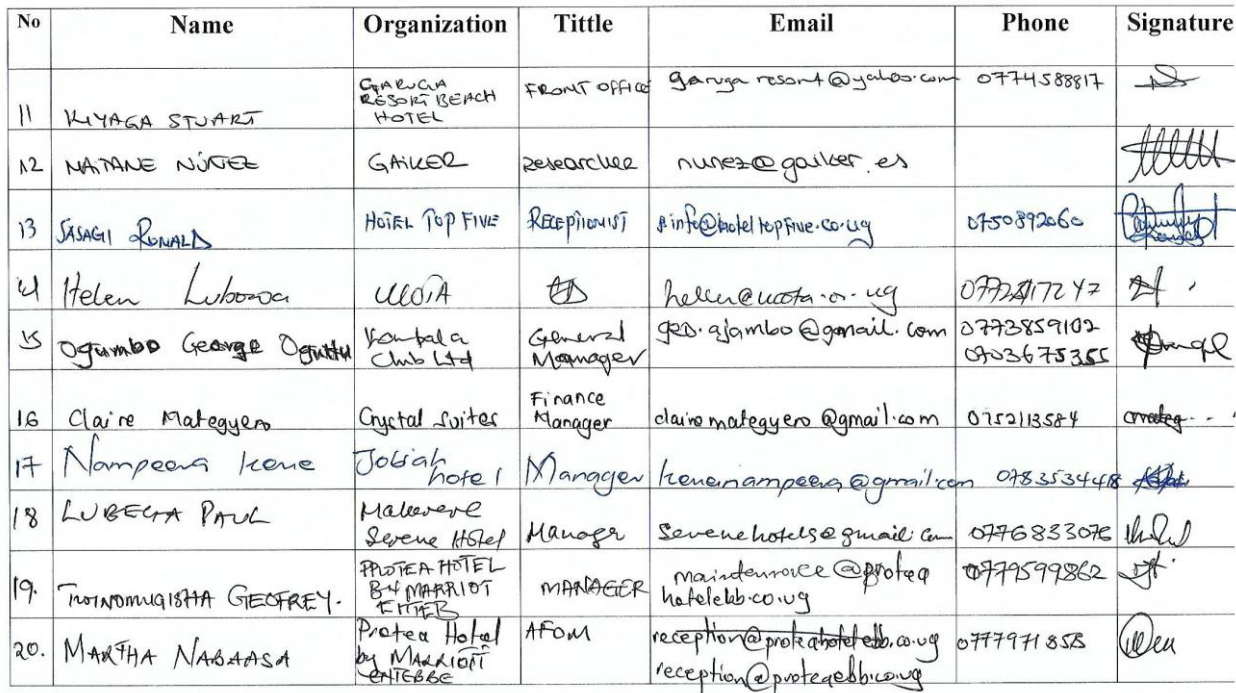 No Name Organization Tittle Email Phone Signature
11 KIYAGA STUART GARUGA RESORT BEACH HOTEL FRONT OFFICE garuga resort@yahoo.com 0774588817
12 NAITANE NÚÑEZ GAIKER Researcher nunez@gaiker.es
13 SASAGI RONALD HOTEL TOP FIVE RECEPTIONIST info@hoteltopfive.co.ug 0750892060
14 Helen Lubowa UHOA
15 Ogumbo George Oguttu Kampala Club Ltd General Manager geo.ajambo@gmail.com 0773859102
0703675355
16 Claire Mategyero Crystal Suites Finance Manager clairemategyero@gmail.com 0752113584
17 Nampeera Irene Jobiah hotel Manager ireneinampeera@gmail.com 0783534418
18 LUBEGA PAUL Makerere Serene Hotel Manager serenehotels@gmail.com 0776833076
19. TWINOMUGISHA GEOFREY. PROTEA HOTEL BY MARRIOT ENTEB MANAGER maintenance@protea
hotelebb.co.ug 0779599862
20. MARTHA NABAASA Protea Hotel by MARRIOTT ENTEBBE AFOM reception@proteahotelebb.co.ug 0777971858
reception@proteaebb.co.ug